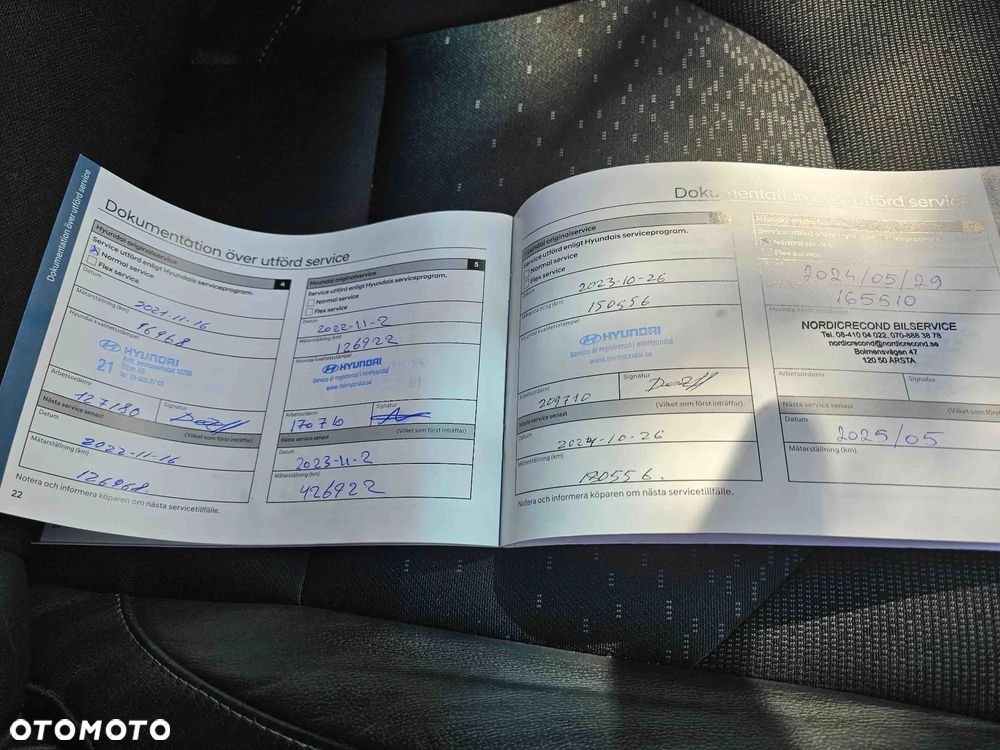 Dokumentation över utförd service
Dokumentation över utförd service
Hyundai originalservice
4
Service utförd enligt Hyundais serviceprogram.
Normal service
Flex service
Datum
2021-11-16
Mätarställning (km)
96968
Hyundai kvalitetsstämpel
HYUNDAI
21
Bilian AB
Arbetsordernr
Signatur
127180
Nästa service senast
(Vilket som först inträffar)
Datum
2022-11-16
Mätarställning (km)
126968.
Notera och informera köparen om nästa servicetillfälle.
22
Hyundai originalservice
5
Service utförd enligt Hyundais serviceprogram.
Normal service
Flex service
Datum
2022-11-2
Mätarställning (km)
126922
Hyundai kvalitetsstämpel
HYUNDAI
Service är registrerad i minHyundai
www.minhyundai.se
Arbetsordernr
Signatur
170710
Nästa service senast
(Vilket som först inträffar)
Datum
2023-11-2
Mätarställning (km)
426922
Dokumentation över utförd service
Hyundai originalservice
Service utförd enligt Hyundais serviceprogram.
Normal service
Flex service
Datum
2023-10-26
Mätarställning (km)
150556
Hyundai kvalitetsstämpel
HYUNDAI
Service är registrerad i minHyundai
www.minhyundai.se
Arbetsordernr
Signatur
209710
Nästa service senast
(Vilket som först inträffar)
Datum
2024-10-26
Mätarställning (km)
180556.
Notera och informera köparen om nästa servicetillfälle.
Hyundai originalservice
Service utförd enligt Hyundais serviceprogram.
Normal service
Flex service
2024/05/29
165510
Hyundai kvalitetsstämpel
NORDICRECOND BILSERVICE
Tel. 08-410 04 022, 070-688 38 78
nordicrecond@nordicrecond.se
Bolmensvägen 47
120 50 ÅRSTA
Arbetsordernr
Signatur
Nästa service senast
(Vilket som först
Datum
2025/05
Mätarställning (km)
OTOMOTO